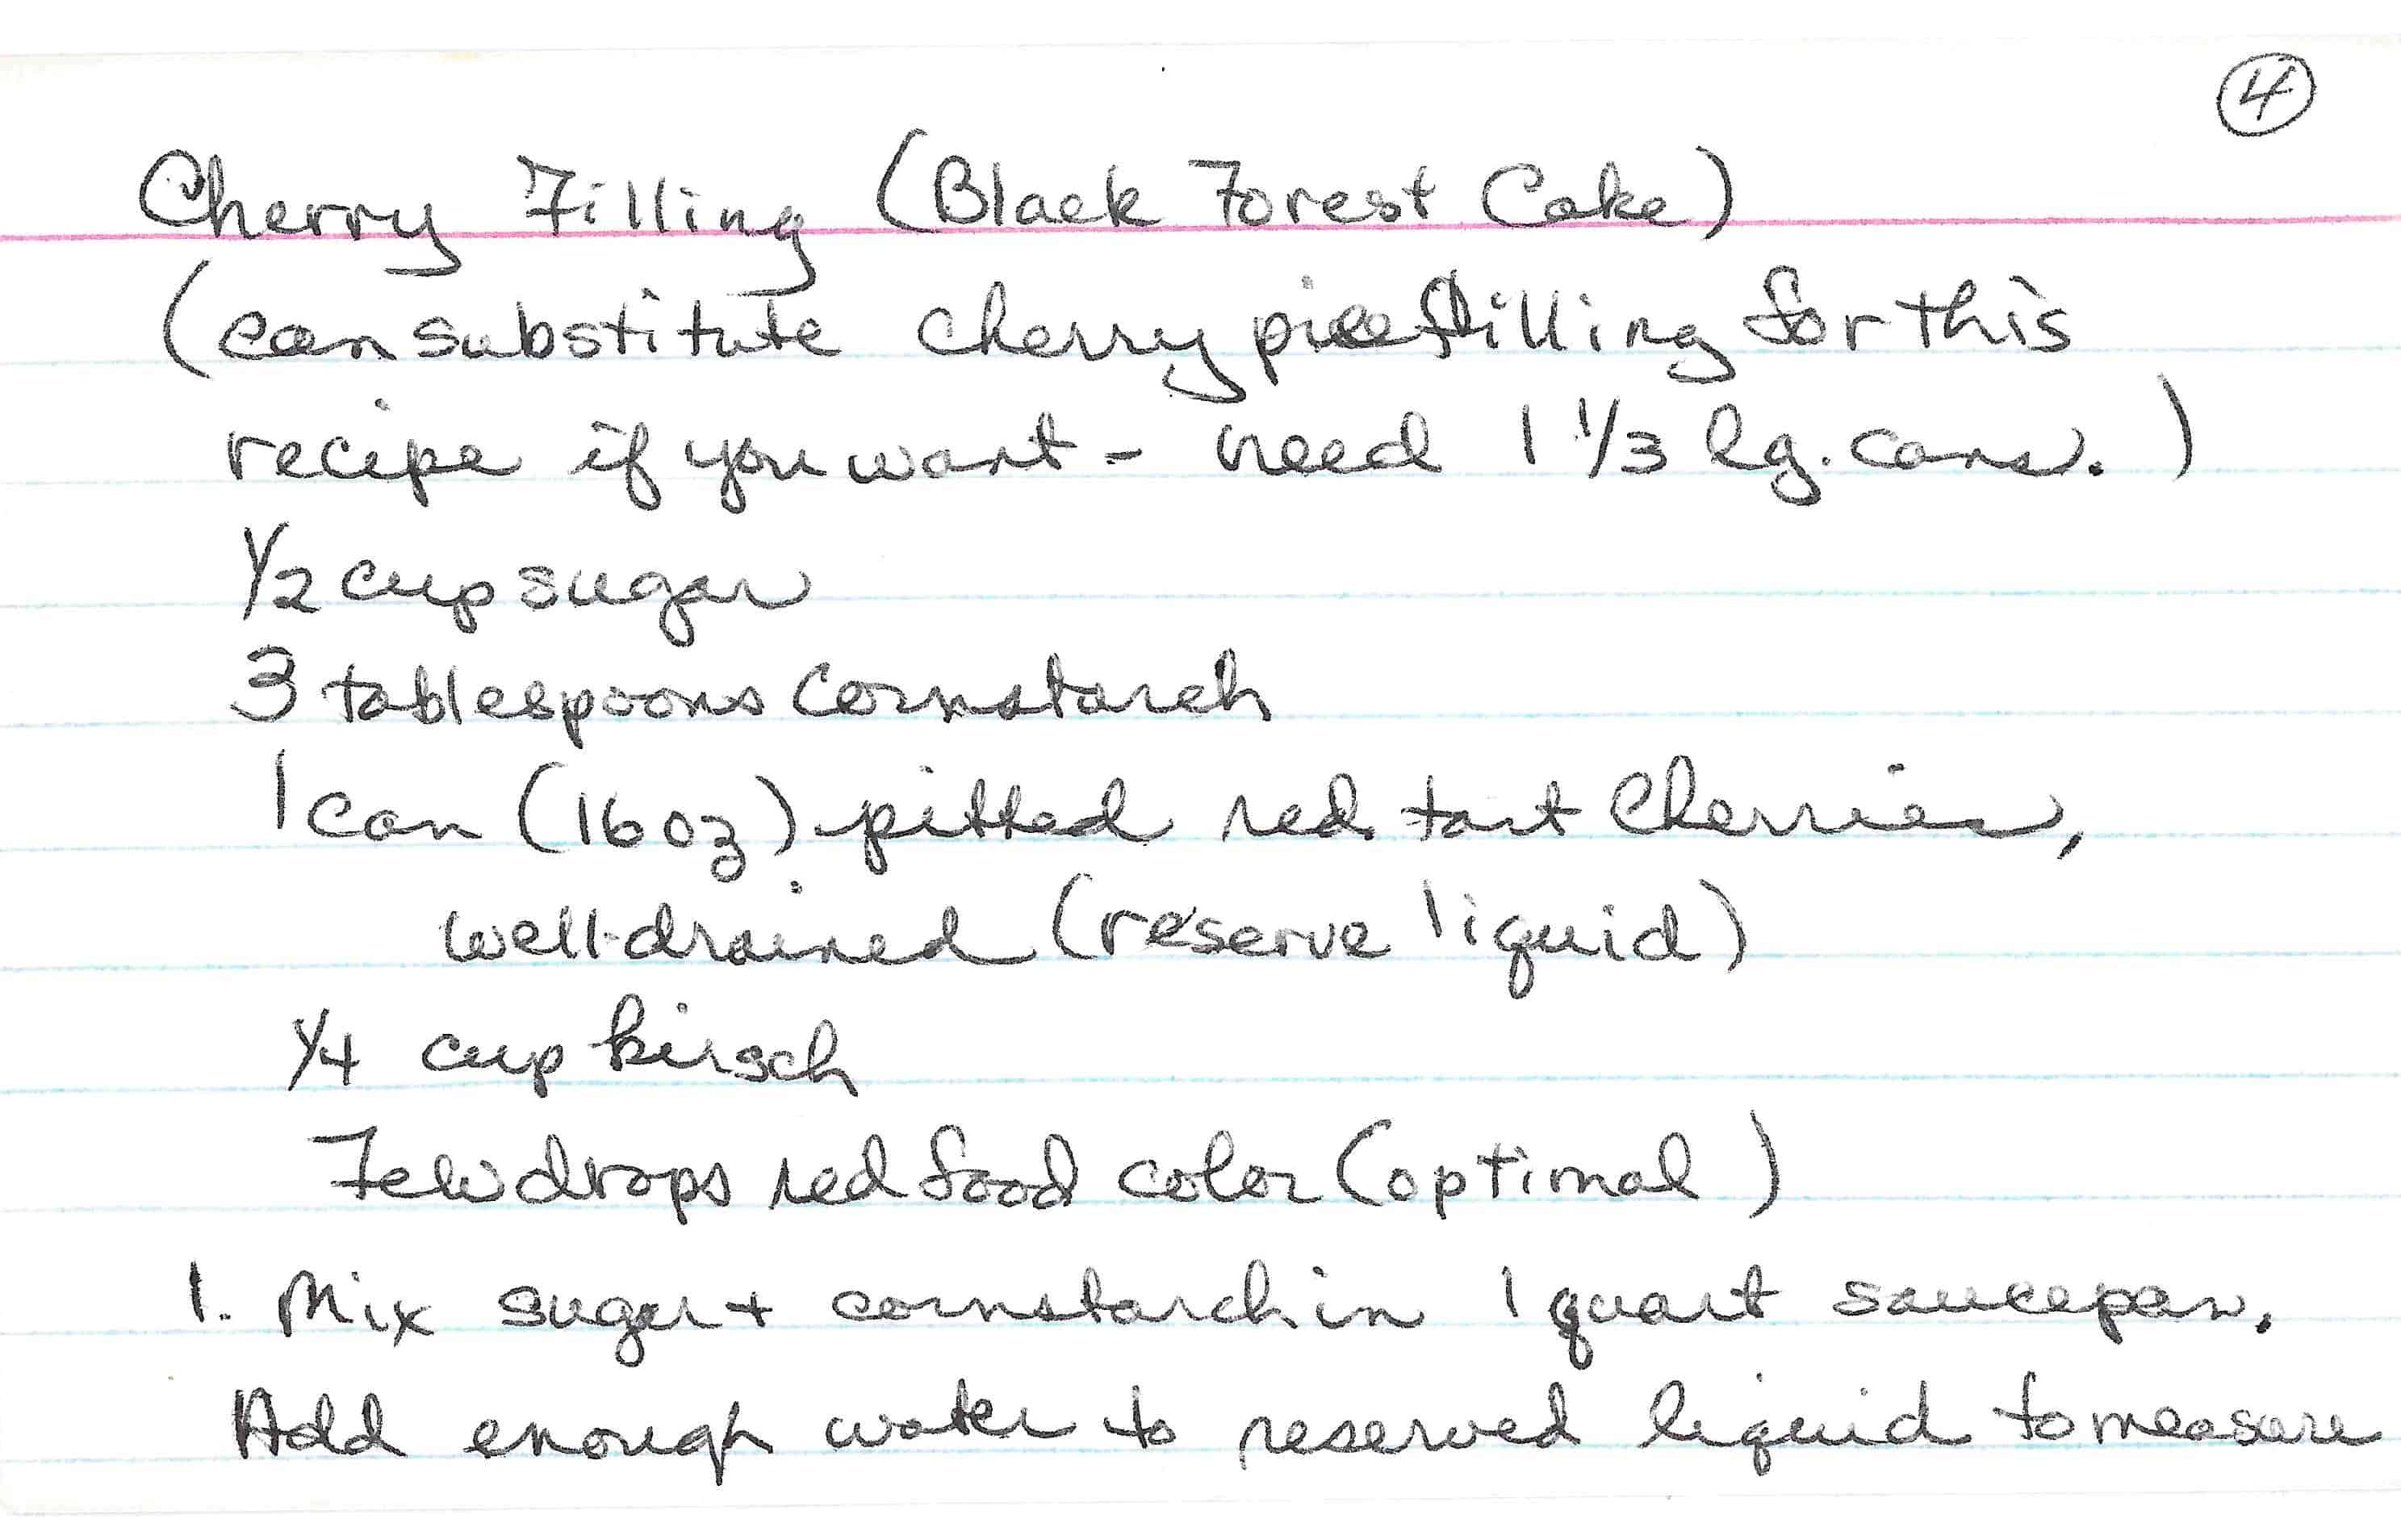 4
Cherry Filling (Black Forest Cake)
(can substitute cherry pie filling for this
recipe if you want - need 1 1/3 lg. cans.)
1/2 cup sugar
3 tablespoons cornstarch
1 can (16 oz) pitted red tart cherries,
well-drained (reserve liquid)
1/4 cup kirsch
Few drops red food color (optimal)
1. Mix sugar + cornstarch in 1 quart saucepan.
Add enough water to reserved liquid to measure